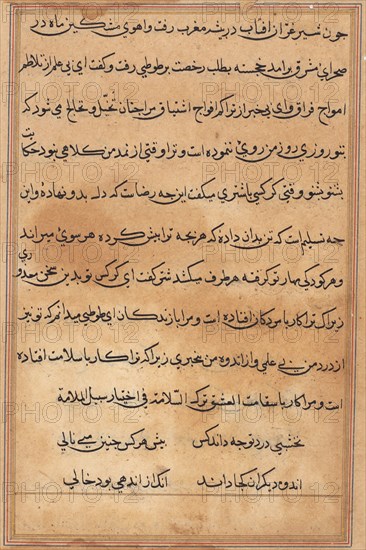 چون شیر غران آفتاب در بیشه مغرب رفت و اهوی مشکین ماه در
صحرای مشرق برامد خجسته بطلب رخصت بر طوطی رفت و کفت ای بی علم از تلاطم
امواج فراق و ای بیخبر از تراکم افواج اشتیاق مرا چنان تخیل و تخالج می شود که
بتو روزی روز من روی ننموده است و ترا وقتی از ند من کلاهی بود حکایت
بشنو بشنو وقتی کرکسی باشتری میکفت این چه رضاست که دل بدو نهاده و این
چه تسلیم است که تن بدان داده که هر بچه ترا پیش کرده هر سوی میراند
و هر کودکی مهار تو کرفته هر طرف میکشد شتر کفت ای کرکس تو بدین سخن معذوری
زیراک ترا کار با مردکان افتاده است و مرا با زندکان ای طوطی میدانم که تو نیز
از درد من بی علمی و از اندوه من بیخبری زیرا که ترا کار با سلامت افتاده
است و مرا کار با سقامت العشق ترک السلامة فی اختیار سبل الملامة
نخشبی درد تو چه داند کس پیش هر کس چنین میی نالی
اندوه دیکران کجا داند انک از اندهی بود خالی